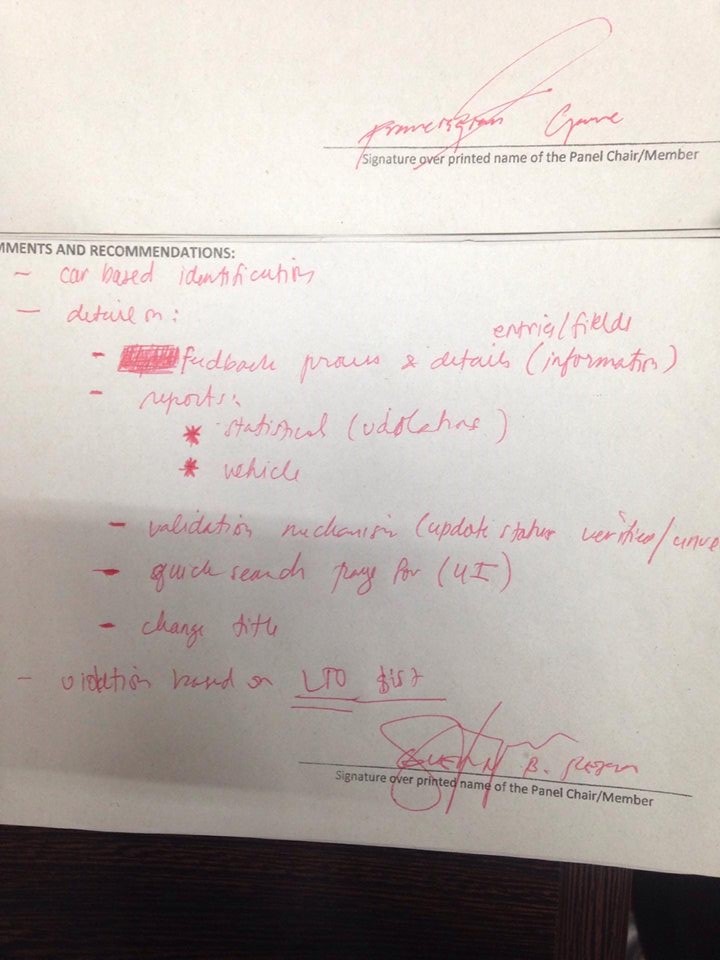 Signature over printed name of the Panel Chair/Member
MMENTS AND RECOMMENDATIONS:
- car based identification
- detail on:
entries/fields
- feedback process & details (information)
- reports:
* statistical (violations)
* vehicle
- validation mechanism (update status verified/unve
- quick search page for (UI)
- change title
- violation based on LTO list
B.
Signature over printed name of the Panel Chair/Member